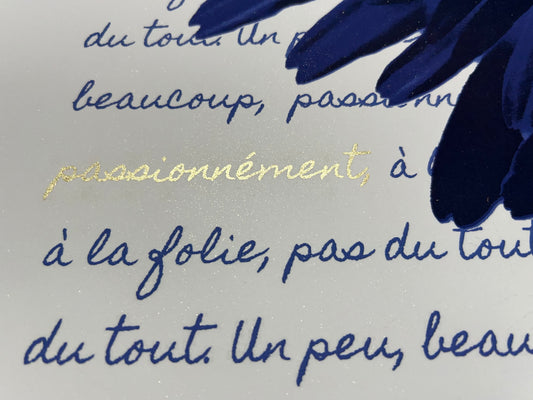 du tout. Un
beaucoup,
passionnément, à
à la folie, pas du tout
du tout. Un peu, beau